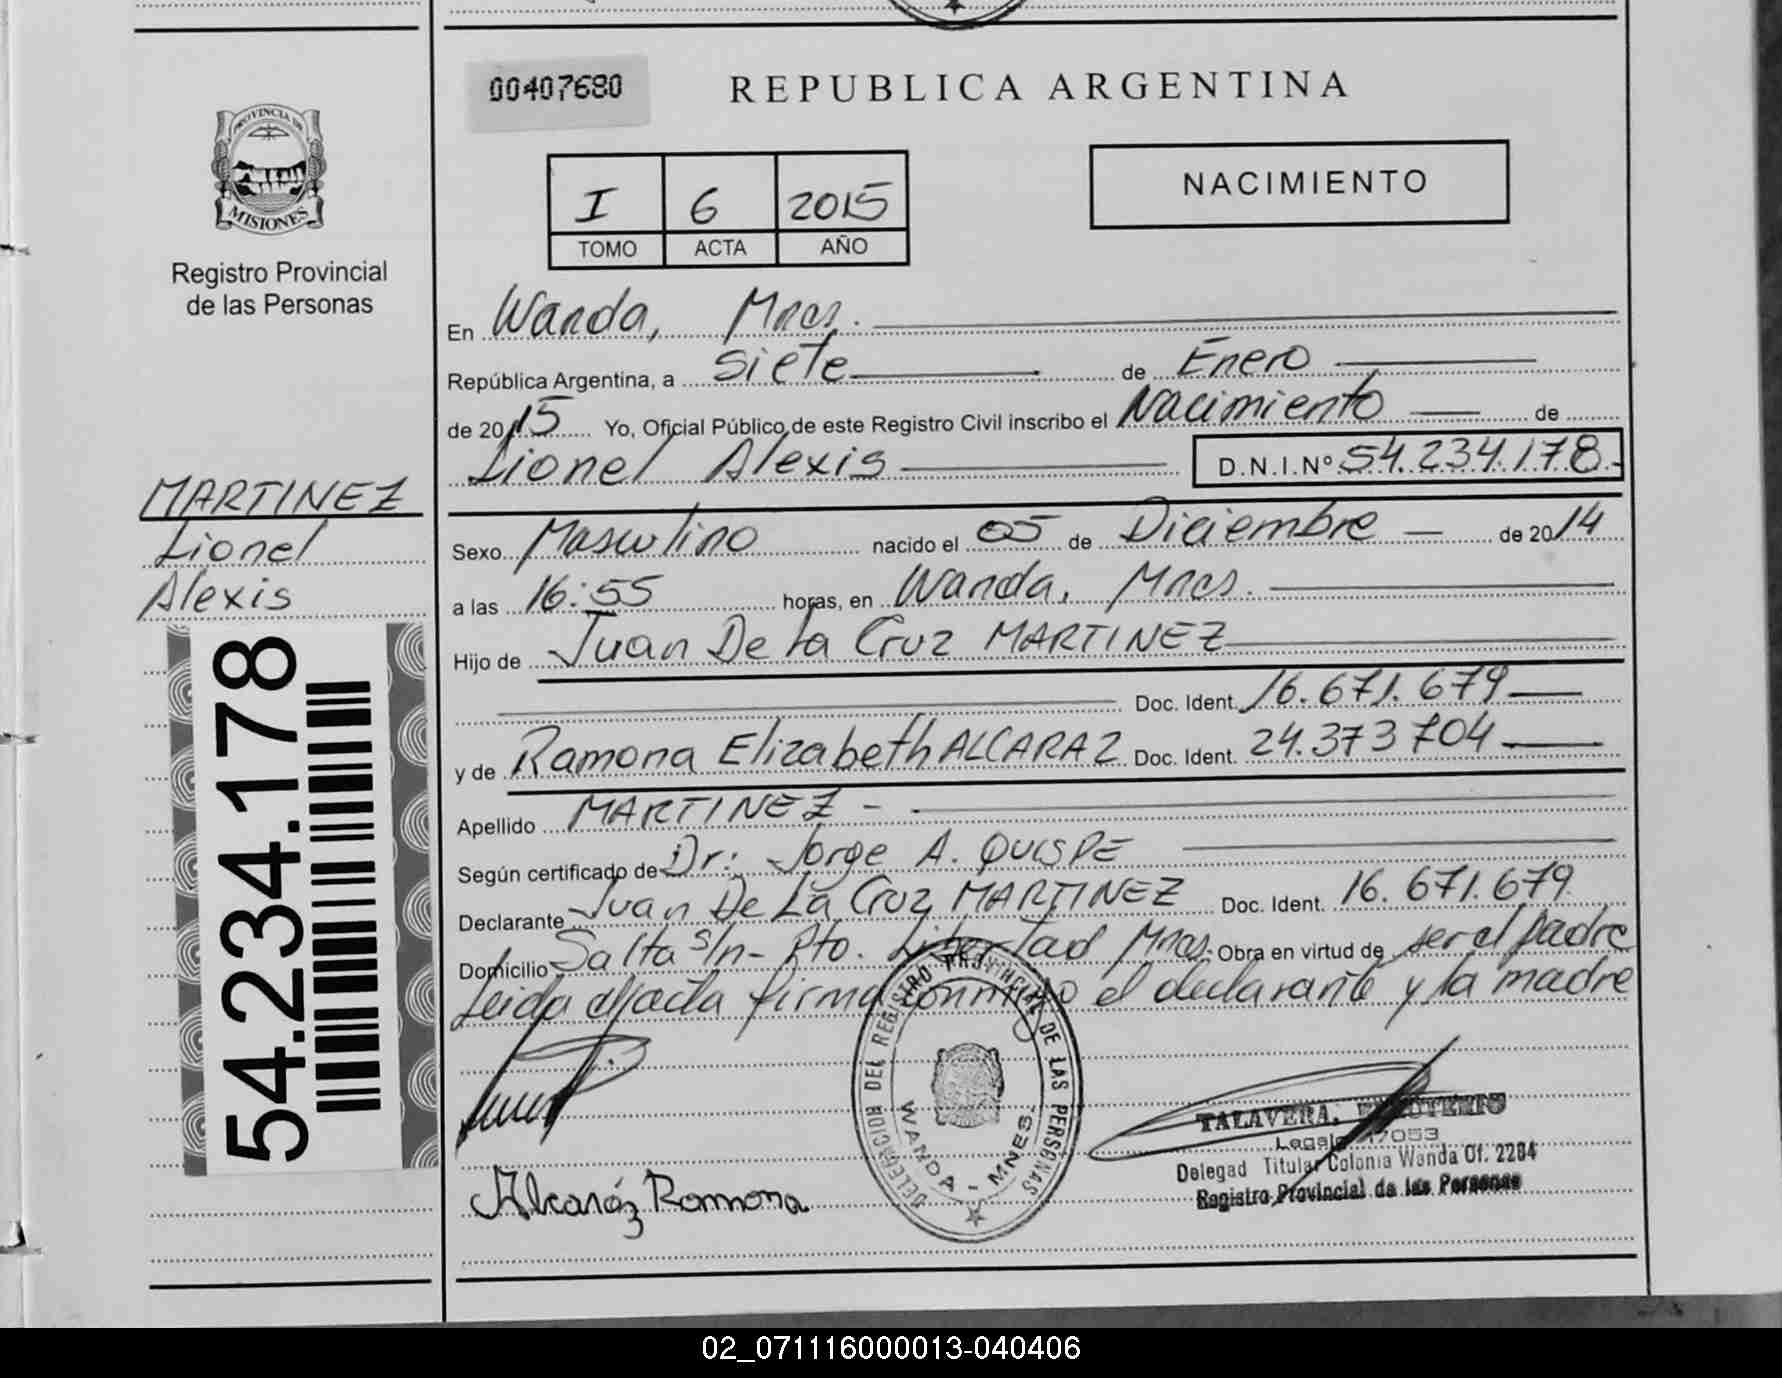 00407680
REPUBLICA ARGENTINA
PROVINCIA DE
MISIONES
Registro Provincial
de las Personas
I 6 2015
TOMO ACTA AÑO
NACIMIENTO
En Wanda, Mnes.
República Argentina, a siete de Enero
de 2015 Yo, Oficial Público de este Registro Civil inscribo el Nacimiento de
Lionel Alexis D.N.I.Nº 54.234.178.-
MARTINEZ
Lionel
Alexis
54.234.178
Sexo Masculino nacido el 05 de Diciembre de 2014
a las 16:55 horas, en Wanda, Mnes.
Hijo de Juan De La Cruz MARTINEZ
Doc. Ident. 16.671.679
y de Ramona Elizabeth ALCARAZ Doc. Ident. 24.373704
Apellido MARTINEZ -
Según certificado de Dr: Jorge A. QUISPE
Declarante Juan De La Cruz MARTINEZ Doc. Ident. 16.671.679
Domicilio Salta s/n - Pto. Libertad Mnes. Obra en virtud de ser el padre
Leida el acta firma conmigo el declarante y la madre
DELEGACION DEL REGISTRO PROVINCIAL DE LAS PERSONAS
WANDA - MNES.
TALAVERA,
Legajo 17053
Delegad Titular Colonia Wanda Of. 2284
Registro Provincial de las Personas
Alcaráz Ramona
02_071116000013-040406